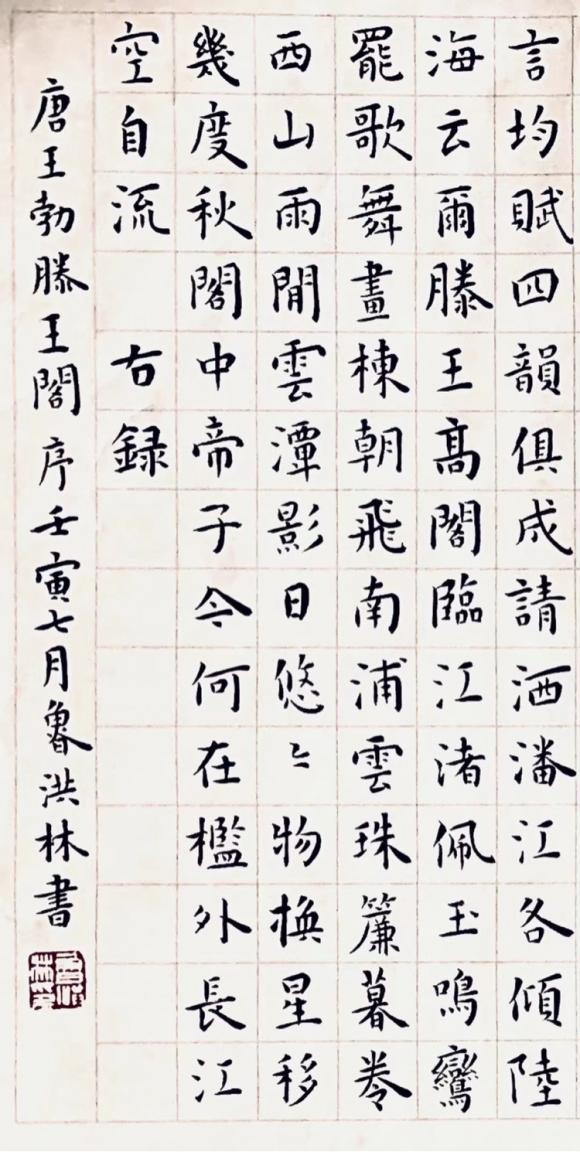 言均賦四韻俱成請洒潘江各傾陸
海云爾滕王高閣臨江渚佩玉鳴鸞
罷歌舞畫棟朝飛南浦雲珠簾暮捲
西山雨閒雲潭影日悠〻物換星移
幾度秋閣中帝子今何在檻外長江
空自流 右録
唐王勃滕王閣序壬寅七月魯洪林書